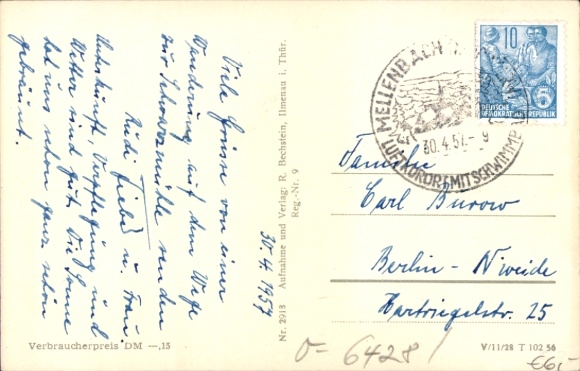 30.4.1957
Viele Grüsse von einer
Wanderung auf dem Wege
zur Schwarzmühle senden
Rudi Liebe u. Frau
Unterkunft, Verpflegung und
Wetter sind gut. Die Sonne
hat uns schon ganz schön
gebräunt.
Verbraucherpreis DM —,15
Nr. 2918 Aufnahme und Verlag: R. Bechstein, Ilmenau i. Thür.
Reg.-Nr. 9
MELLENBACH
30.4.57.- 9
LUFTKURORT MIT SCHWIMMB
10
DEUTSCHE
DEMOKRATISCHE REPUBLIK
5
Familie
Carl Burow
Berlin - N'weide
Hartriegelstr. 25
0-6428/
V/11/28 T 102 56
€6,-